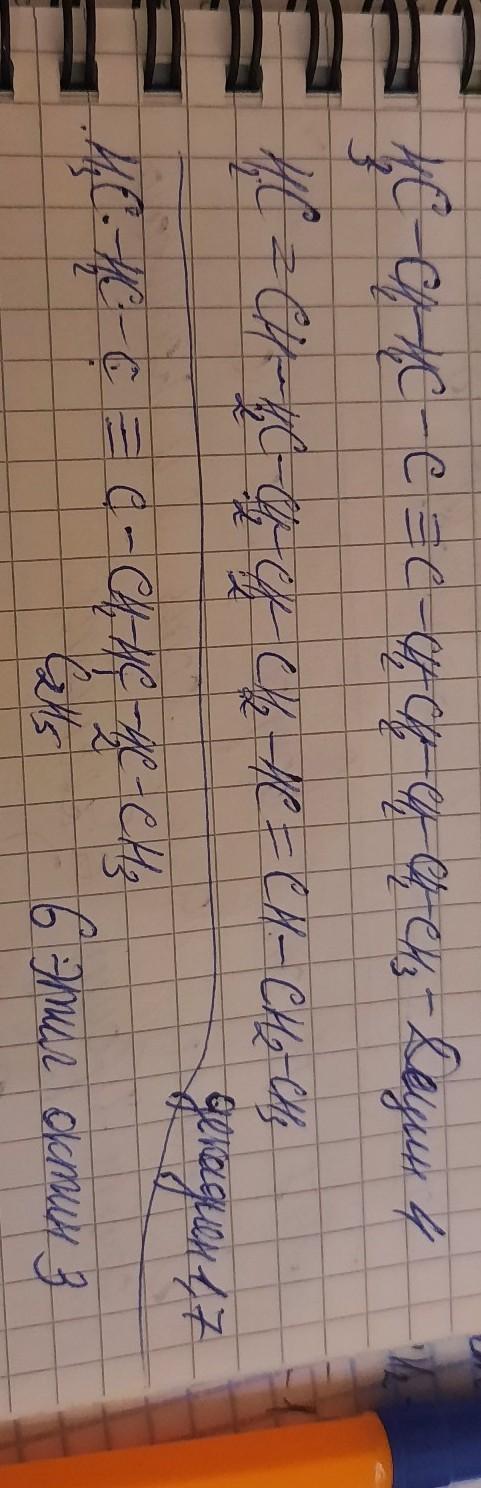 H₃C-CH₂-H₂C-C≡C-CH₂-CH₂-CH₂-CH₂-CH₃ - Децин 4
H₂C=CH-H₂C-CH₂-CH₂-CH₂-HC=CH-CH₂-CH₃
декадиен 1,7
H₃C-H₂C-C≡C-CH₂-HC-H₂C-CH₃
C₂H₅
6 этил октин 3